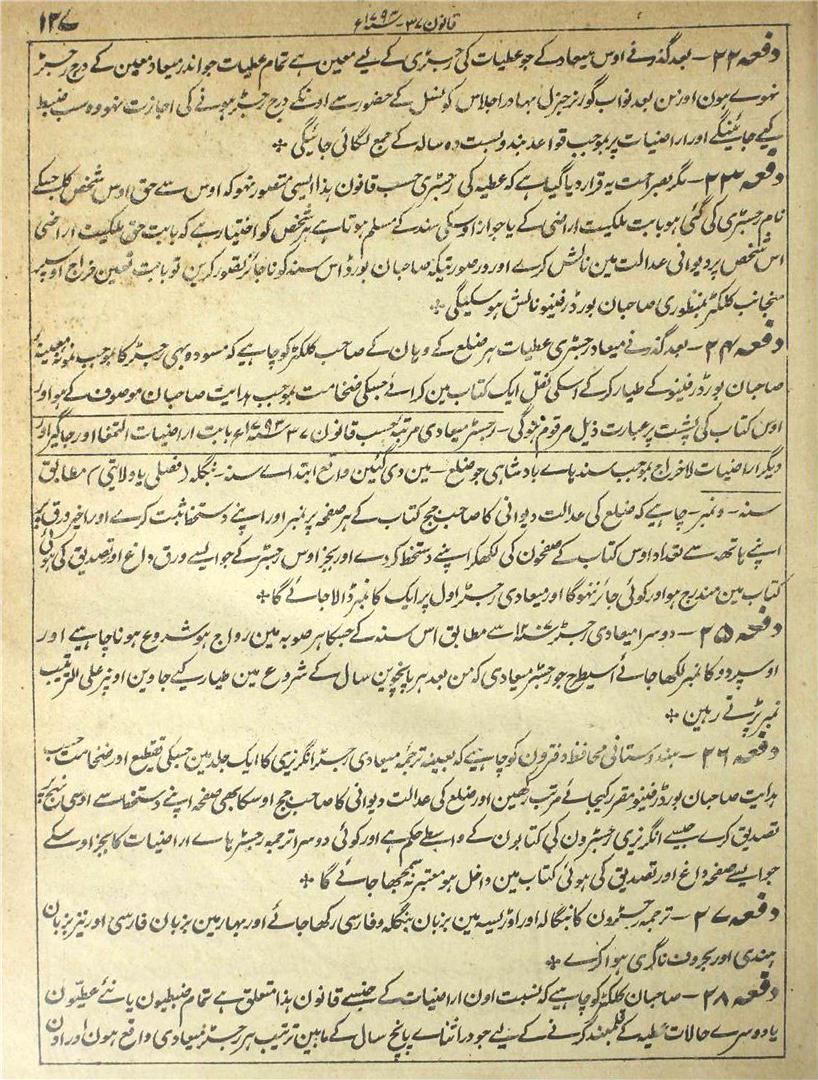 قانون ۳۷۔ ۱۷۹۳ء
۱۳۷
دفعہ ۲۲ - بعد گذرنے اوس میعاد کے جو عطیات کی رجسٹری کے لیے معین ہے تمام عطیات جو اندر میعاد معین کے درج رجسٹر
نہوے ہون اور من بعد نواب گورنر جنرل بہادر اجلاس کونسل کے حضور سے اونکے درج رجسٹر ہونے کی اجازت نہو وہ سب ضبط
کیے جائینگے اور اراضیات پر بموجب قواعد بندوبست دہ سالہ کے جمع لگائی جائیگی *
دفعہ ۲۳ - مگر بصراحت یہ قرار دیا گیا ہے کہ عطیہ کی رجسٹری حسب قانون ہذا ایسی متصور نہو کہ اوس سے حق اوس شخص کا جسکے
نام رجسٹری کی گئی ہو بابت ملکیت اراضی کے یا جواز اوسکی سند کے مسلم ہوتا ہے ہر شخص کو اختیار ہے کہ بابت حق ملکیت اراضی
اس شخص پر دیوانی عدالت مین نالش کرے اور درصورتیکہ صاحبان بورڈ اس سند کو ناجائز تصور کرین تو بابت تعین خراج اوسپر
منجانب کلکٹر بمنظوری صاحبان بورڈ رفینو نالش ہو سکیگی *
دفعہ ۲۴ - بعد گذرنے میعاد رجسٹری عطیات ہر ضلع کے وہان کے صاحب کلکٹر کو چاہیے کہ مسودہ بہی رجسٹر کا بموجب نمونہ معینہ
صاحبان بورڈ رفینو کے طیار کرکے اسکی نقل ایک کتاب مین کرائے جسکی ضخامت بموجب ہدایت صاحبان موصوف کے ہو اور
اوس کتاب کی پشت پر عبارت ذیل مرقوم ہوگی - رجسٹر میعادی مرتبہ حسب قانون ۳۷ ۱۷۹۳ء بابت اراضیات التمغا اور جاگیر اور
دیگر اراضیات لاخراج بموجب سند ہاے بادشاہی جو ضلع - مین دی گئین واقع ابتداے سنہ - بنگلہ (فصلی یا ولایتی) مطابق
سنہ - و نمبر - چاہیے کہ ضلع کی عدالت دیوانی کا صاحب جج کتاب کے ہر صفحہ پر نمبر اور اپنے دستخط ثبت کرے اور اخیر ورق پر
اپنے ہاتھ سے تعداد اوس کتاب کے صفحون کی لکھکر اپنے دستخط کر دے اور بجز اوس رجسٹر کے جو ایسے ورق داغ اور تصدیق کی ہوئی
کتاب مین مندرج ہو اور کوئی جائز نہوگا اور میعادی رجسٹر اول پر ایک کا نمبر ڈالا جائے گا *
دفعہ ۲۵ - دوسرا میعادی رجسٹر ۱۲۰۷ سے مطابق اس سنہ کے جسکا ہر صوبہ مین رواج ہو شروع ہونا چاہیے اور
اوسپر دو کا نمبر لکھا جائے اسیطرح جو رجسٹر میعادی کہ من بعد ہر پانچوین سال کے شروع مین طیار کیے جاوین اونپر علی الترتیب
نمبر پڑتے رہین *
دفعہ ۲۶ - ہندوستانی محافظ دفترون کو چاہیے کہ بعینہ ترجمہ میعادی رجسٹر انگریزی کا ایک جلد مین جسکی تقطیع اور ضخامت حسب
ہدایت صاحبان بورڈ رفینو مقرر کیجائے مرتب رکھین اور ضلع کی عدالت دیوانی کا صاحب جج اوسکا بھی صفحہ اپنے دستخط سے اوسی نہج پر
تصدیق کرے جیسے انگریزی رجسٹرون کی کتابون کے واسطے حکم ہے اور کوئی دوسرا ترجمہ رجسٹر ہاے اراضیات کا بجز اوسکے
جو ایسے صفحہ داغ اور تصدیق کی ہوئی کتاب مین داخل ہو معتبر نہ سمجھا جائے گا *
دفعہ ۲۷ - ترجمہ رجسٹرون کا بنگالہ اور اوڑیسہ مین بزبان بنگلہ و فارسی رکھا جائے اور بہار مین بزبان فارسی اور نیز بزبان
ہندی اور بحروف ناگری ہوا کرے *
دفعہ ۲۸ - صاحبان کلکٹر کو چاہیے کہ نسبت اون اراضیات کے جنسے قانون ہذا متعلق ہے تمام ضبطیون یا نئے عطیون
یا دوسرے حالات عطیہ کے قلمبند کرنے کے لیے جو در اثناے پانچ سال کے مابین ترتیب ہر رجسٹر میعادی واقع ہون اور اون